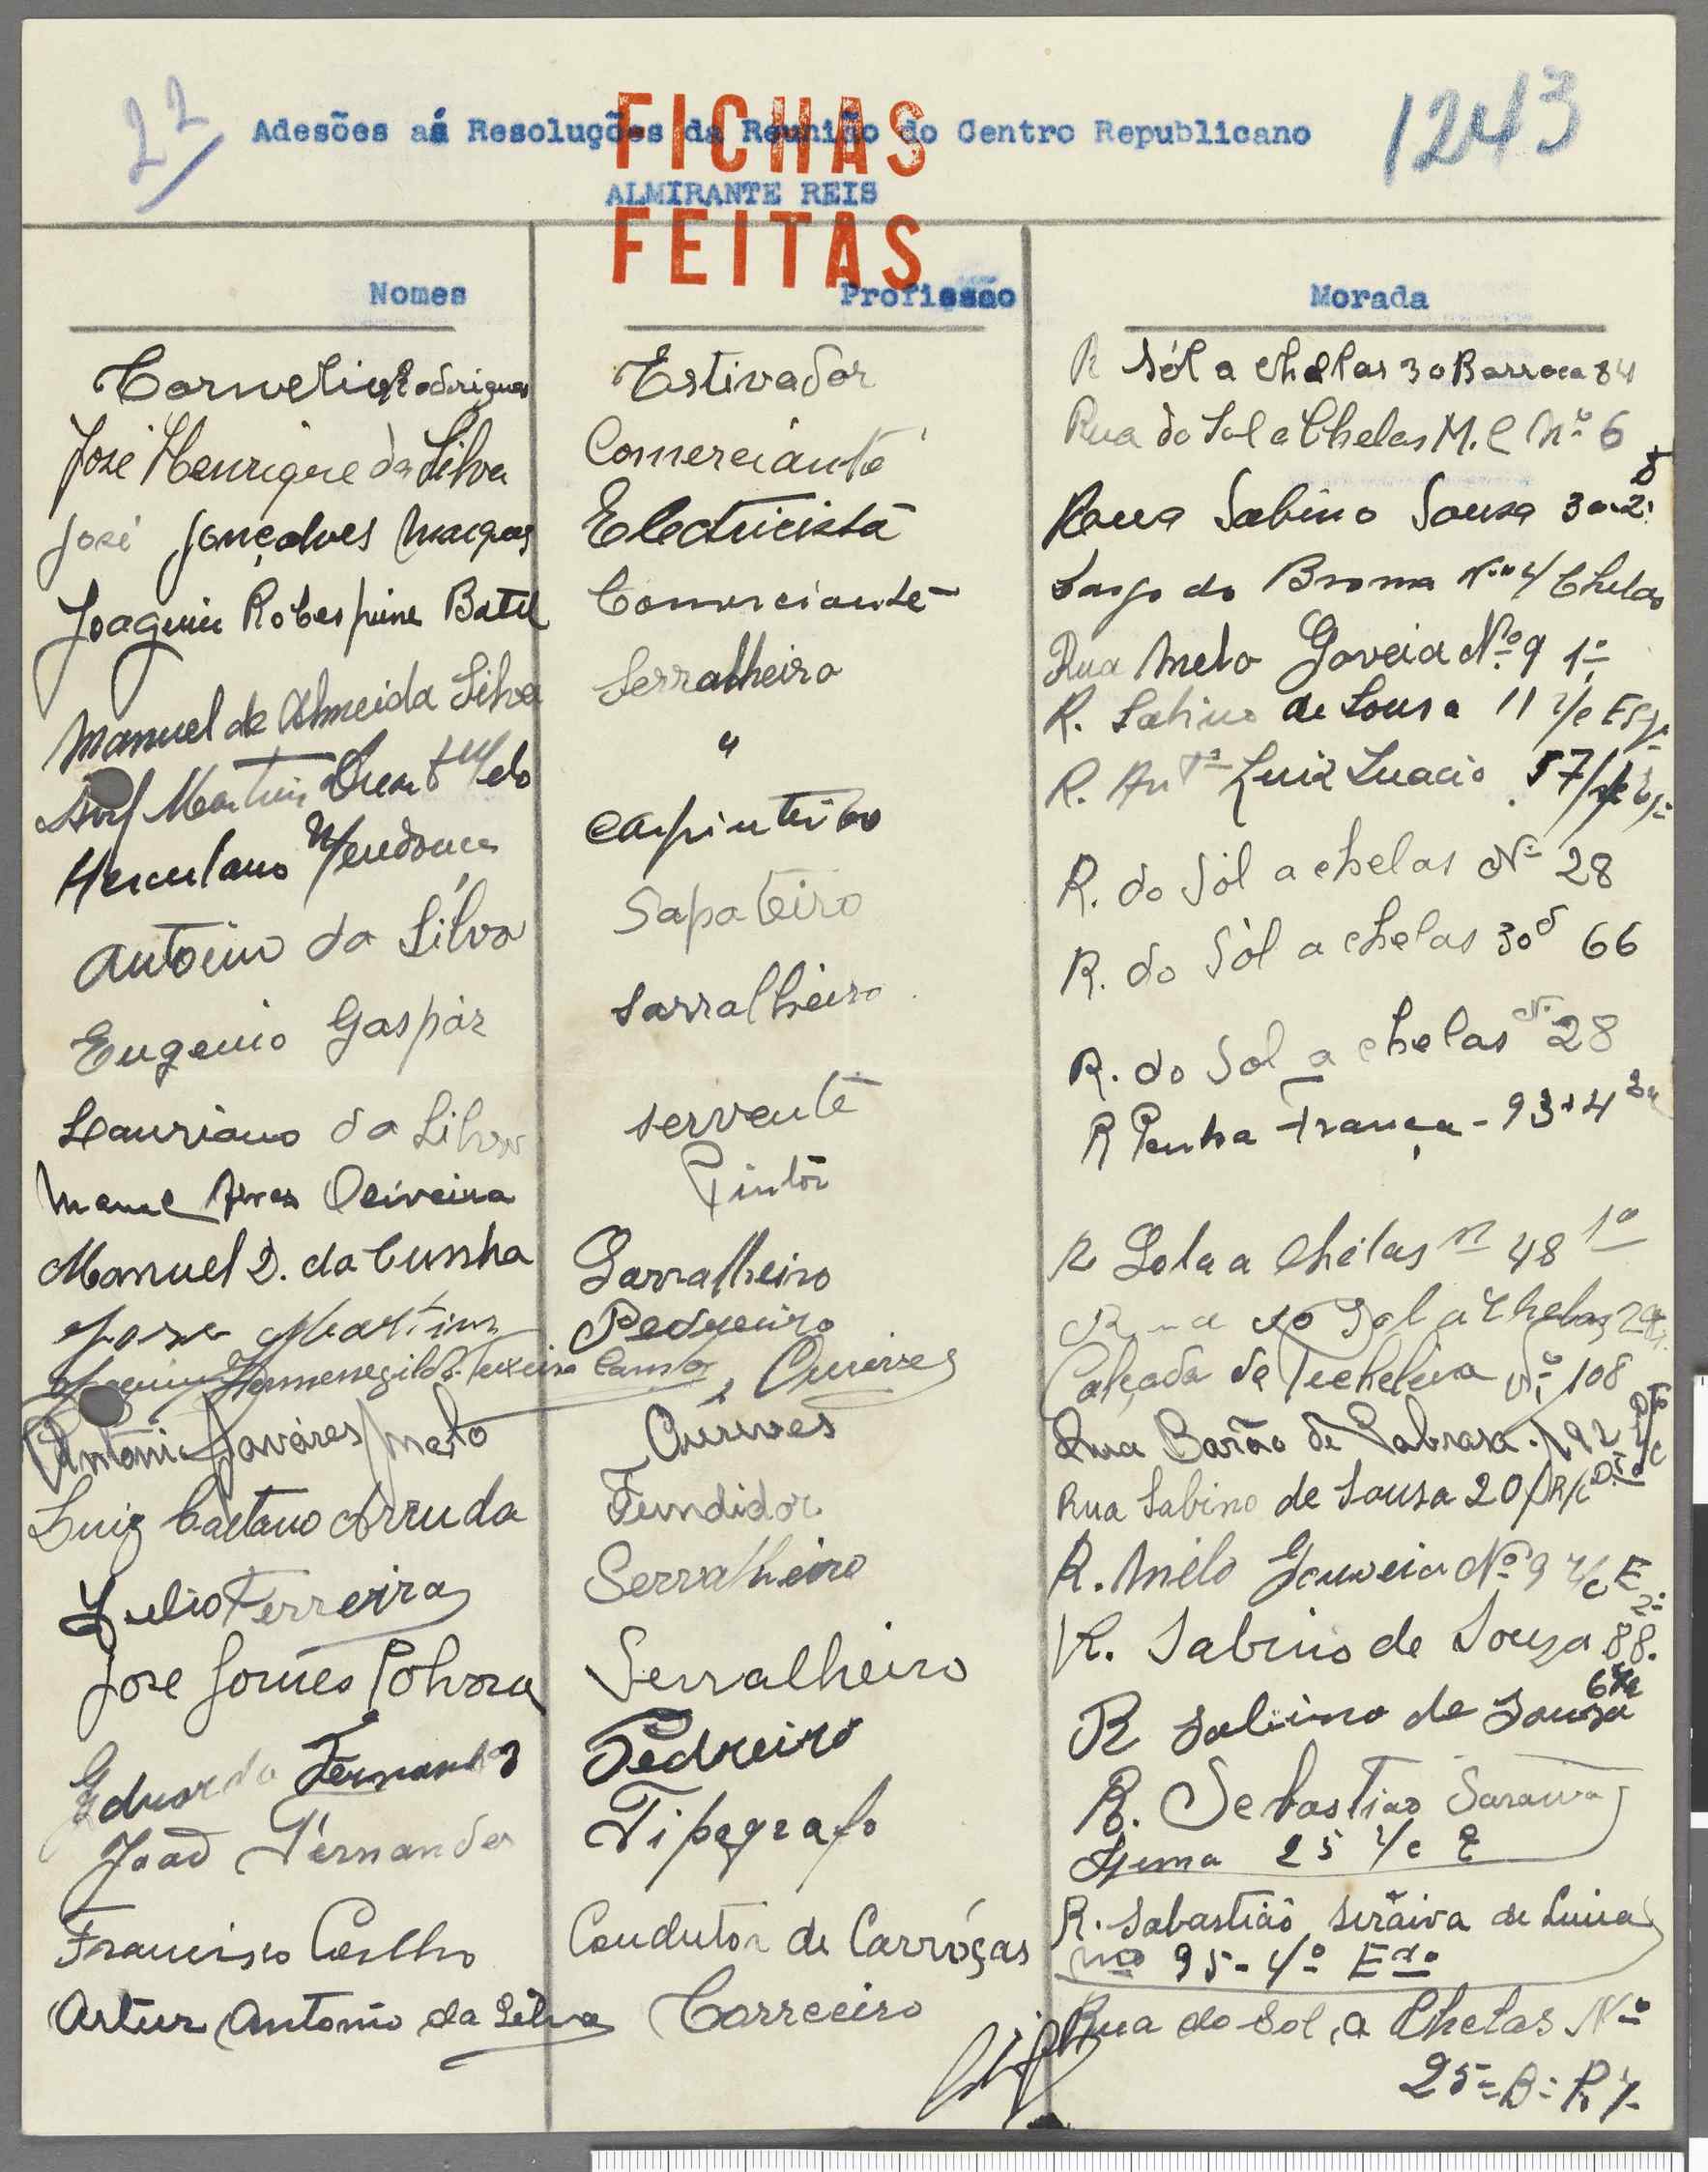 22
Adesões aá Resoluções da Reunião do Centro Republicano
1243
ALMIRANTE REIS
FICHAS
FEITAS
Nomes Profissão Morada
Cornelio Rodrigues Estivador R Sól a Chelas 30 Barraca 84
José Henrique da Silva Comerciante Rua do Sol a Chelas M. C Nº 6
José Gonçalves Marques Electricista Rua Sabino Sousa 30-2º
Joaquim Robespierre Comerciante Largo do Broma Nº 4 Chelas
Manuel de Almeida Silva Serralheiro Rua Melo Goveia Nº 9 1º
Martins " R. Sabino de Sousa 11 r/c Esq.
Herculano Mendonça Carpinteiro R. Antº Luiz Inacio 57
Antonio da Silva Sapateiro R. do Sól a chelas Nº 28
Eugenio Gaspar sarralheiro R. do Sól a chelas 30 66
Lauriano da Silva servente R. do Sol a chelas Nº 28
Manuel Alves Oliveira Pintor R Penha França - 93
Manuel D. da Cunha Sarralheiro R Sol a a Chélas nº 48 1º
Jose Martins Pedreiro Rua do Sol a Chelas
Joaquim Hermenegildo Teixeira Ourives Calçada da Picheleira Nº 108
Antonio Tavares Ourives Rua Barão de Sabrosa. 192 r/c
Luiz Caetano Arruda Fundidor Rua Sabino de Sousa 20 R/c D.to
Julio Ferreira Serralheiro R. Mélo Gouveia Nº 9 r/c E
José Gomes Polvora Serralheiro R. Sabino de Souza 88. 2º
Eduardo Fernandes Pedreiro R Sabino de Sousa
João Fernandes Tipografo R. Sebastião Saraiva
Lima 25 r/c E
Francisco Coelho Condutor de Carróças R. Sabastião Seraiva de Lima
nº 95 - 4º Edo
Artur Antonio da Silva Correeiro Rua do Sol, a Chelas Nº
25 = B = R/